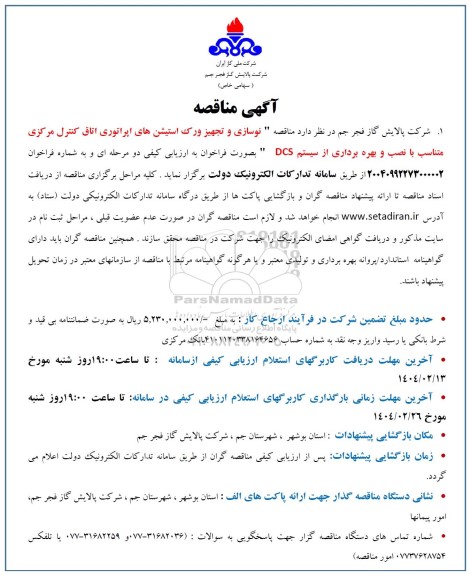 شرکت ملی گاز ایران
شرکت پالایش گاز فجر جم
( سهامی خاص )
آگهی مناقصه
۱. شرکت پالایش گاز فجر جم در نظر دارد مناقصه " نوسازی و تجهیز ورک استیشن های اپراتوری اتاق کنترل مرکزی
متناسب با نصب و بهره برداری از سیستم DCS " بصورت فراخوان به ارزیابی کیفی دو مرحله ای و به شماره فراخوان
۲۰۰۴۰۹۹۲۲۷۳۰۰۰۰۰۲ از طریق سامانه تدارکات الکترونیک دولت برگزار نماید . کلیه مراحل برگزاری مناقصه از دریافت
اسناد مناقصه تا ارائه پیشنهاد مناقصه گران و بازگشایی پاکت ها از طریق درگاه سامانه تدارکات الکترونیکی دولت (ستاد) به
آدرس www.setadiran.ir انجام خواهد شد و لازم است مناقصه گران در صورت عدم عضویت قبلی ، مراحل ثبت نام در
سایت مذکور و دریافت گواهی امضای الکترونیک را جهت شرکت در مناقصه محقق سازند . همچنین مناقصه گران باید دارای
گواهینامه استاندارد/پروانه بهره برداری و تولیدی معتبر و یا هرگونه گواهینامه مرتبط با مناقصه از سازمانهای معتبر در زمان تحویل
پیشنهاد باشند.
ParsNamadData
پایگاه اطلاع رسانی مناقصه و مزایده
• حدود مبلغ تضمین شرکت در فرآیند ارجاع کار : به مبلغ -/۵,۲۳۰,۰۰۰,۰۰۰ ریال به صورت ضمانتنامه بی قید و
شرط بانکی یا رسید واریز وجه نقد به شماره حساب ۴۱۰۱۱۲۰۳۳۸۱۶۴۶۵۶بانک مرکزی
• آخرین مهلت دریافت کاربرگهای استعلام ارزیابی کیفی ازسامانه : تا ساعت۱۹:۰۰روز شنبه مورخ
۱۴۰۴/۰۲/۱۳
• آخرین مهلت زمانی بارگذاری کاربرگهای استعلام ارزیابی کیفی در سامانه: تا ساعت ۱۹:۰۰ روز شنبه
مورخ ۱۴۰۴/۰۲/۲۶
• مکان بازگشایی پیشنهادات : استان بوشهر ، شهرستان جم ، شرکت پالایش گاز فجر جم
• زمان بازگشایی پیشنهادات: پس از ارزیابی کیفی مناقصه گران از طریق سامانه تدارکات الکترونیک دولت اعلام می
گردد.
• نشانی دستگاه مناقصه گذار جهت ارائه پاکت های الف : استان بوشهر ، شهرستان جم ، شرکت پالایش گاز فجر جم،
امور پیمانها
• شماره تماس های دستگاه مناقصه گزار جهت پاسخگویی به سوالات : (۳۱۶۸۲۰۳۶-۰۷۷و ۳۱۶۸۲۲۵۹-۰۷۷ یا تلفکس
۰۷۷۳۷۶۲۸۷۵۴ امور مناقصه)